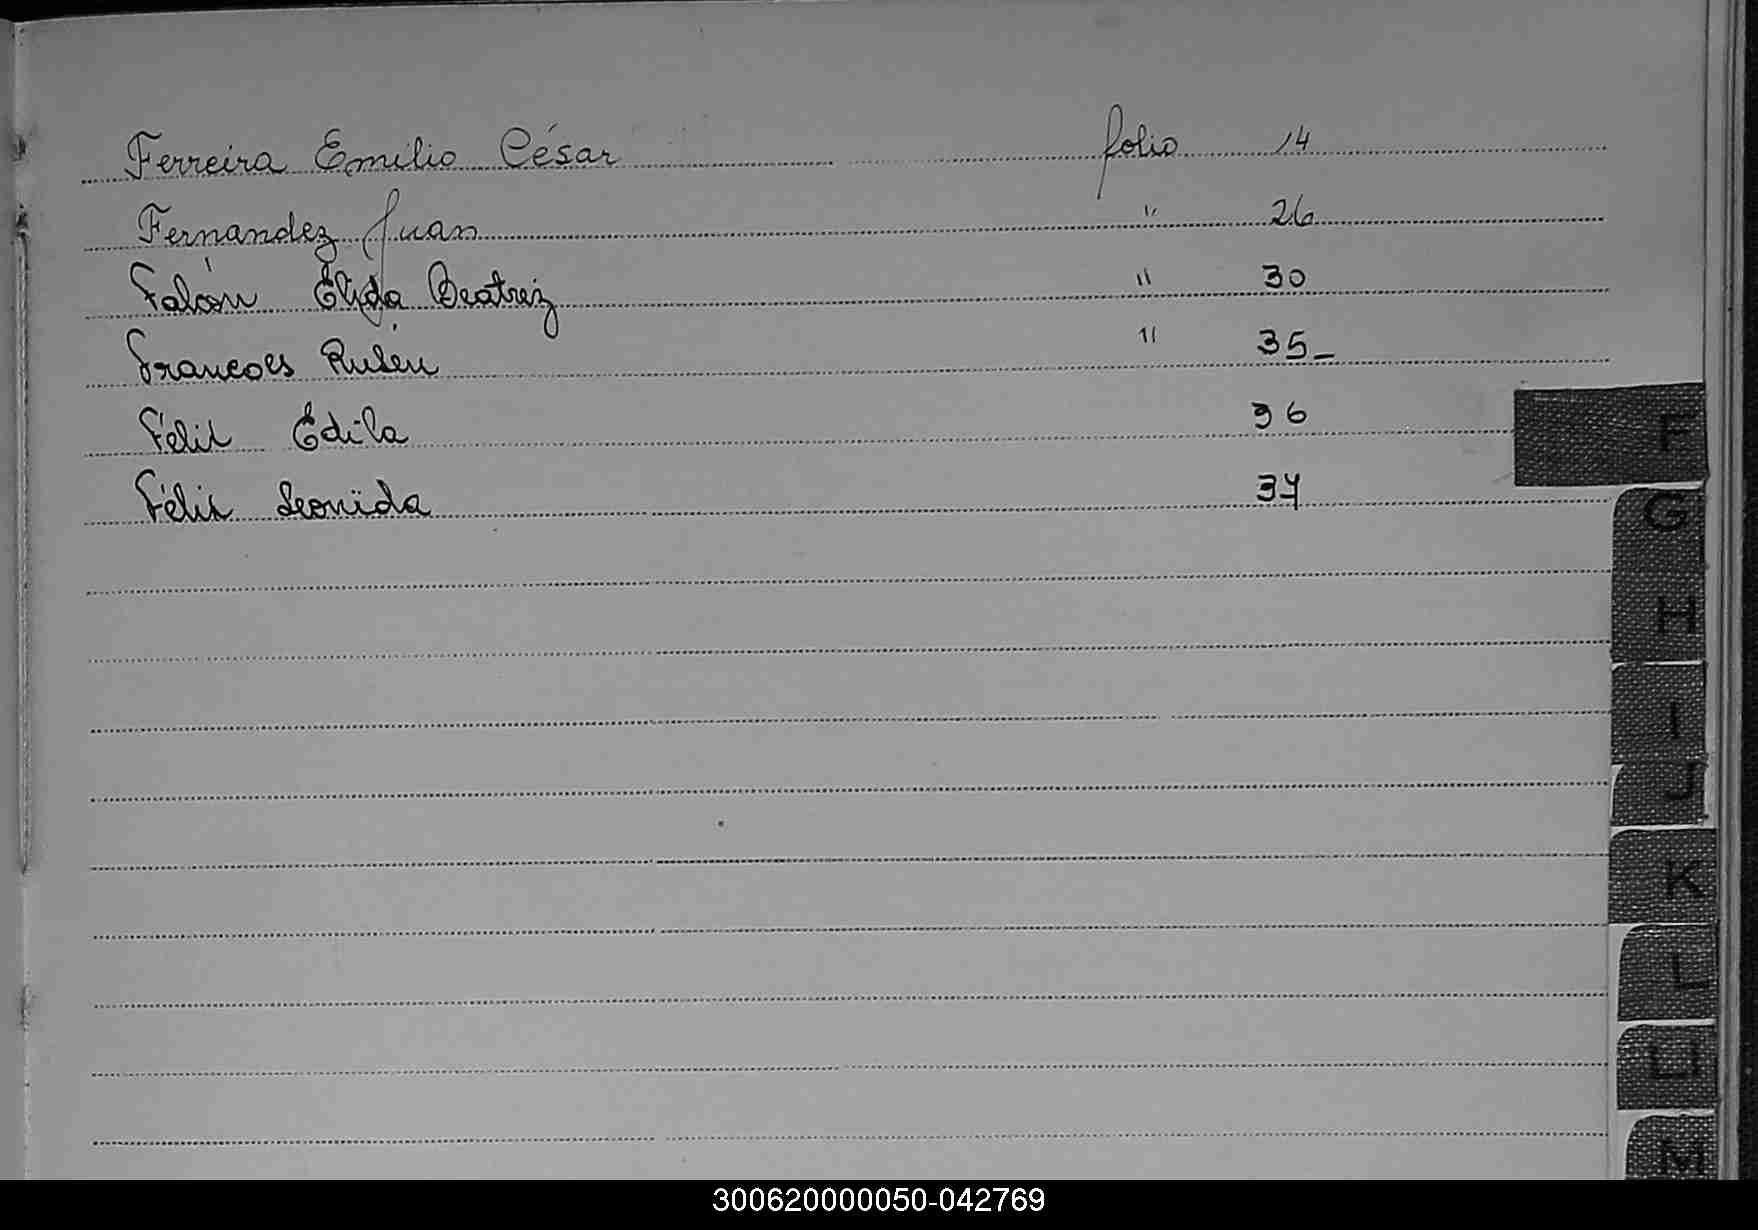 Ferreira Emilio César folio 14
Fernandez Juan " 26
Falcón Elida Beatriz " 30
Francois Rubén " 35_
Félix Edila 36
Félix Leonida 37
F
G
H
I
J
K
L
LL
M
300620000050-042769